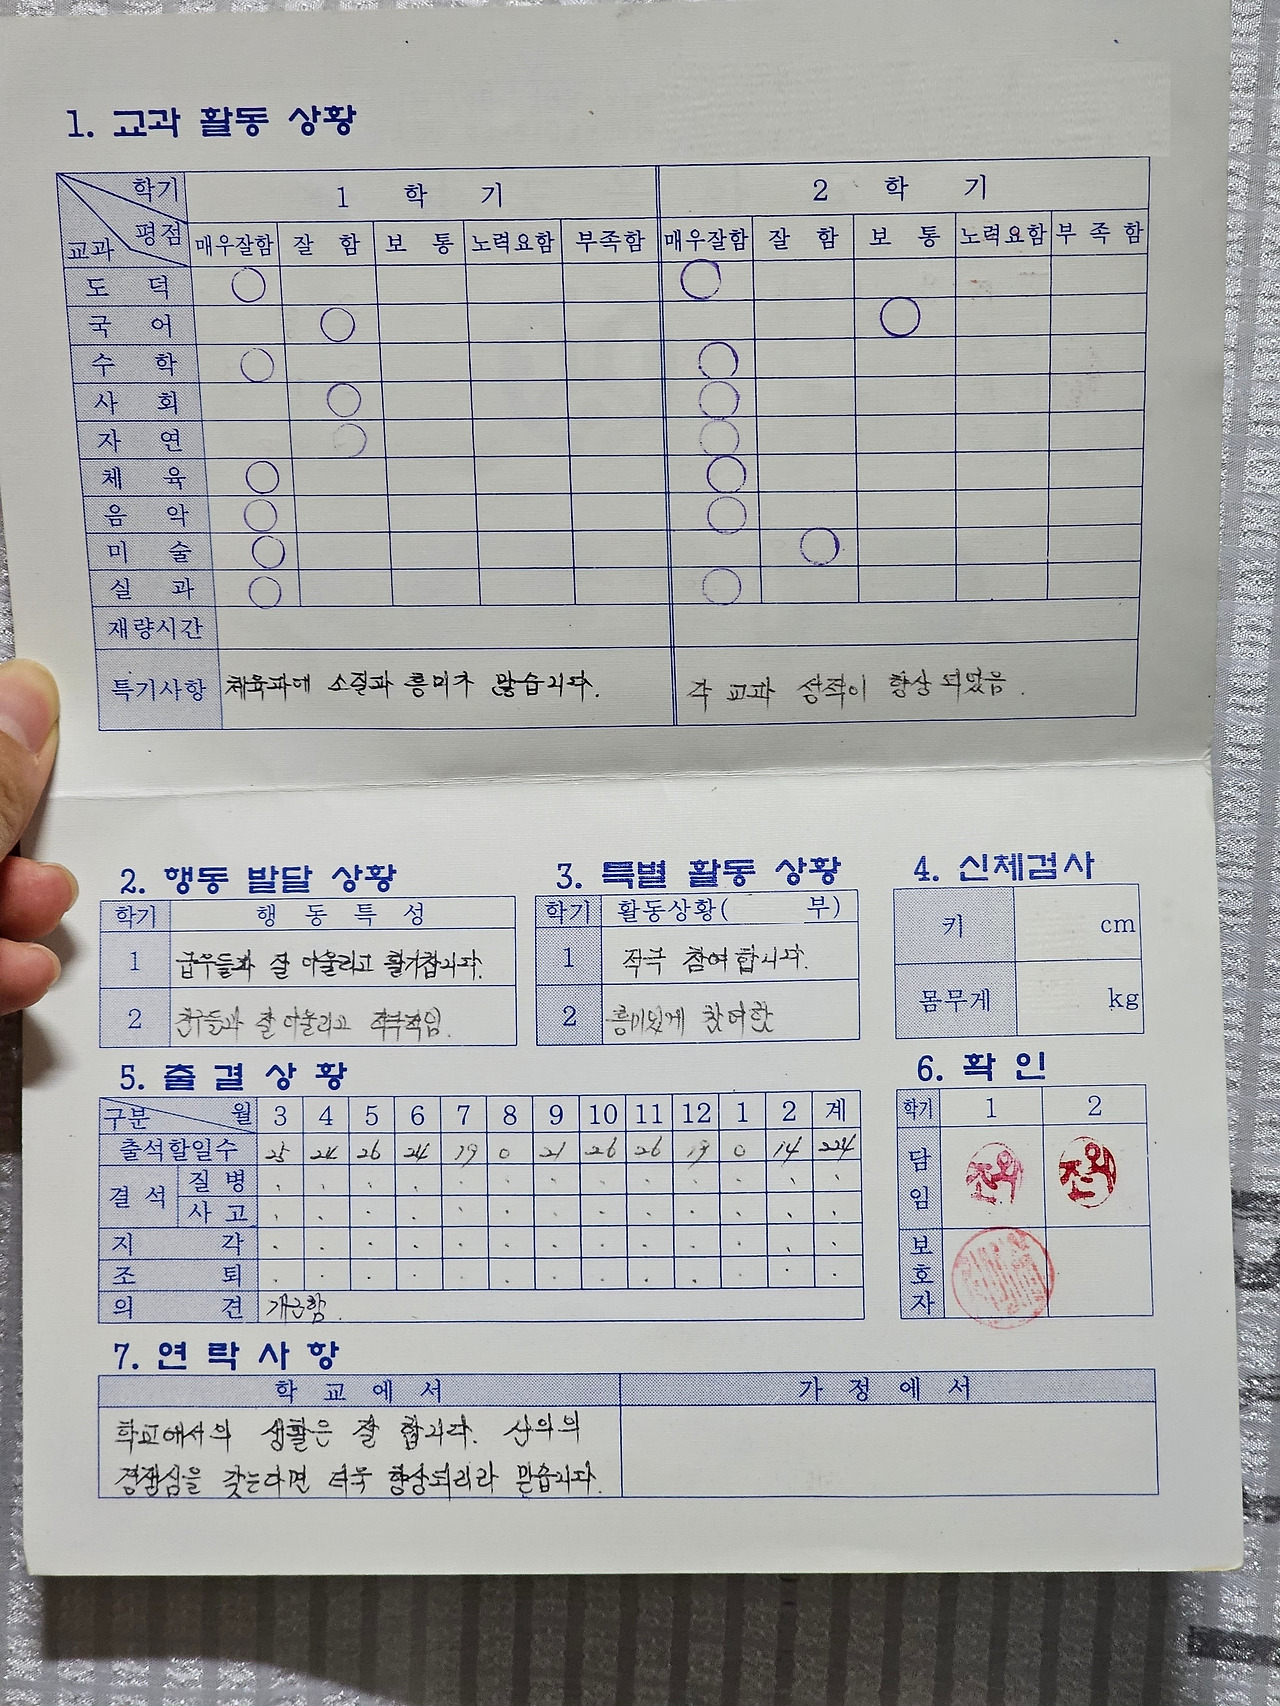 1. 교과 활동 상황
학기 1 학 기 2 학 기
교과 평점 매우잘함 잘 함 보 통 노력요함 부족함 매우잘함 잘 함 보 통 노력요함 부 족 함
도 덕 ○ ○
국 어 ○ ○
수 학 ○ ○
사 회 ○ ○
자 연 ○ ○
체 육 ○ ○
음 악 ○ ○
미 술 ○ ○
실 과 ○ ○
재량시간
특기사항 체육과에 소질과 흥미가 많습니다. 각 교과 성적이 향상 되었음.
2. 행동 발달 상황
학기 행 동 특 성
1 급우들과 잘 어울리고 활기찹니다.
2 친구들과 잘 어울리고 적극적임.
3. 특별 활동 상황
학기 활동상황( 부)
1 적극 참여합니다.
2 흥미있게 참여함
4. 신체검사
키 cm
몸무게 kg
5. 출 결 상 황
구분 월 3 4 5 6 7 8 9 10 11 12 1 2 계
출석할일수 25 24 26 24 19 0 21 26 26 19 0 14 224
결 석 질 병 . . . . . . . . . . . . .
사 고 . . . . . . . . . . . . .
지 각 . . . . . . . . . . . . .
조 퇴 . . . . . . . . . . . . .
의 견 개근함.
6. 확 인
학기 1 2
담임
보호자
7. 연 락 사 항
학 교 에 서 가 정 에 서
학교에서의 생활은 잘 합니다. 선의의
경쟁심을 갖는다면 더욱 향상되리라 믿습니다.